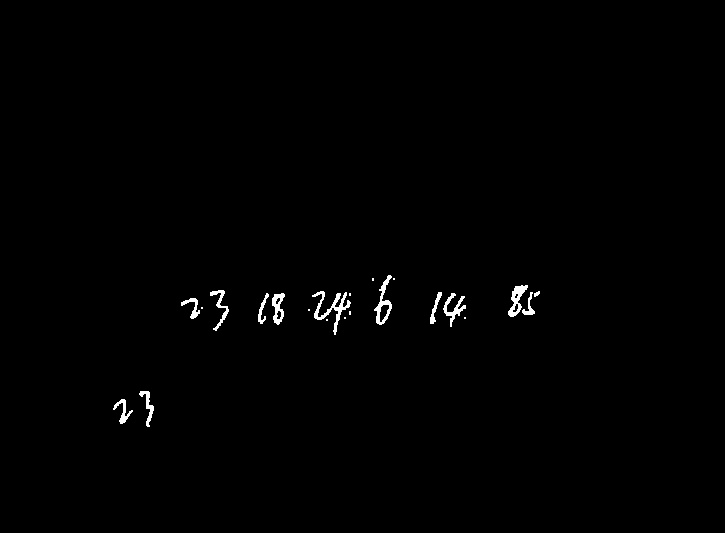 23 18 24 6 14 85
23